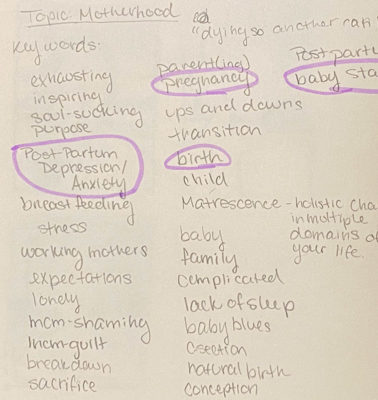 Topic: Motherhood
"dying so another
Key words:
exhausting
inspiring
soul-sucking
purpose
Post-Partum
Depression/
Anxiety
breastfeeding
stress
working mothers
expectations
lonely
mom-shaming
mom-guilt
breakdown
sacrifice
parent(ing)
pregnancy
ups and downs
transition
birth
child
Matrescence - holistic cha
in multiple
domains of
your life.
baby
family
complicated
lack of sleep
baby blues
csection
natural birth
conception
Post partu
baby sta